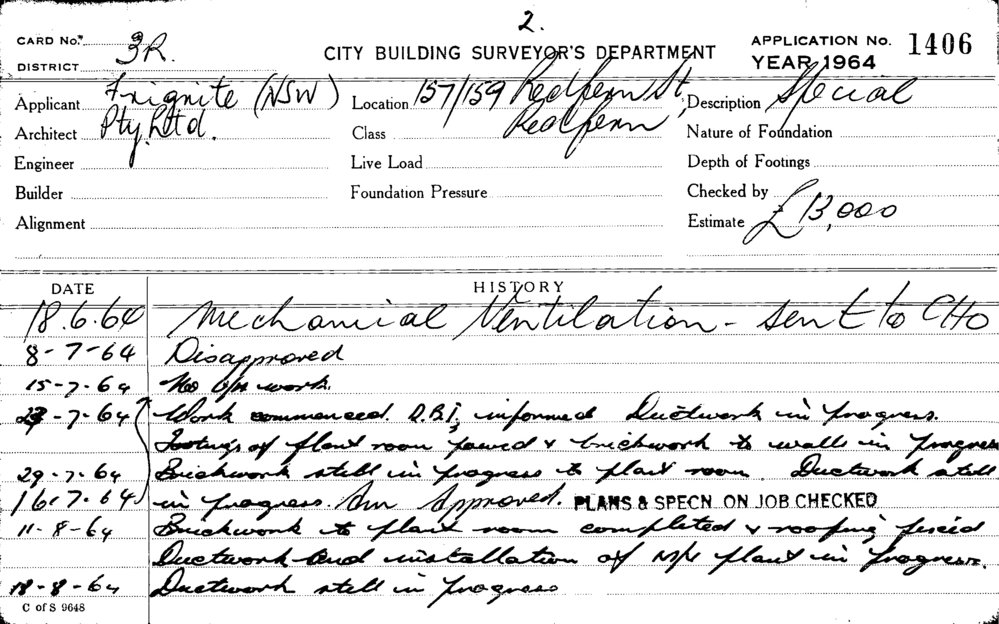 2.
CARD No. 3R.
DISTRICT
CITY BUILDING SURVEYOR'S DEPARTMENT
APPLICATION No. 1406
YEAR 1964
Applicant Frignite (NSW)
Location 157/159 Redfern St,
Description Special
Architect Pty Ltd.
Class Redfern
Nature of Foundation
Engineer
Live Load
Depth of Footings
Builder
Foundation Pressure
Checked by
Alignment
Estimate £13,000
DATE HISTORY
18.6.64 Mechanical Ventilation - sent to CHO
8-7-64 Disapproved
15-7-64 No work.
-7-64 Work commenced. D.B.I. informed Ductwork in progress.
Footings of plant room poured & brickwork to walls in progress
29-7-64 Brickwork still in progress to plant room Ductwork still
16.7.64 in progress. Approved. PLANS & SPECN. ON JOB CHECKED
11-8-64 Brickwork to plant room completed & roofing fixed
Ductwork and installation of plant in progress.
18-8-64 Ductwork still in progress
C of S 9648